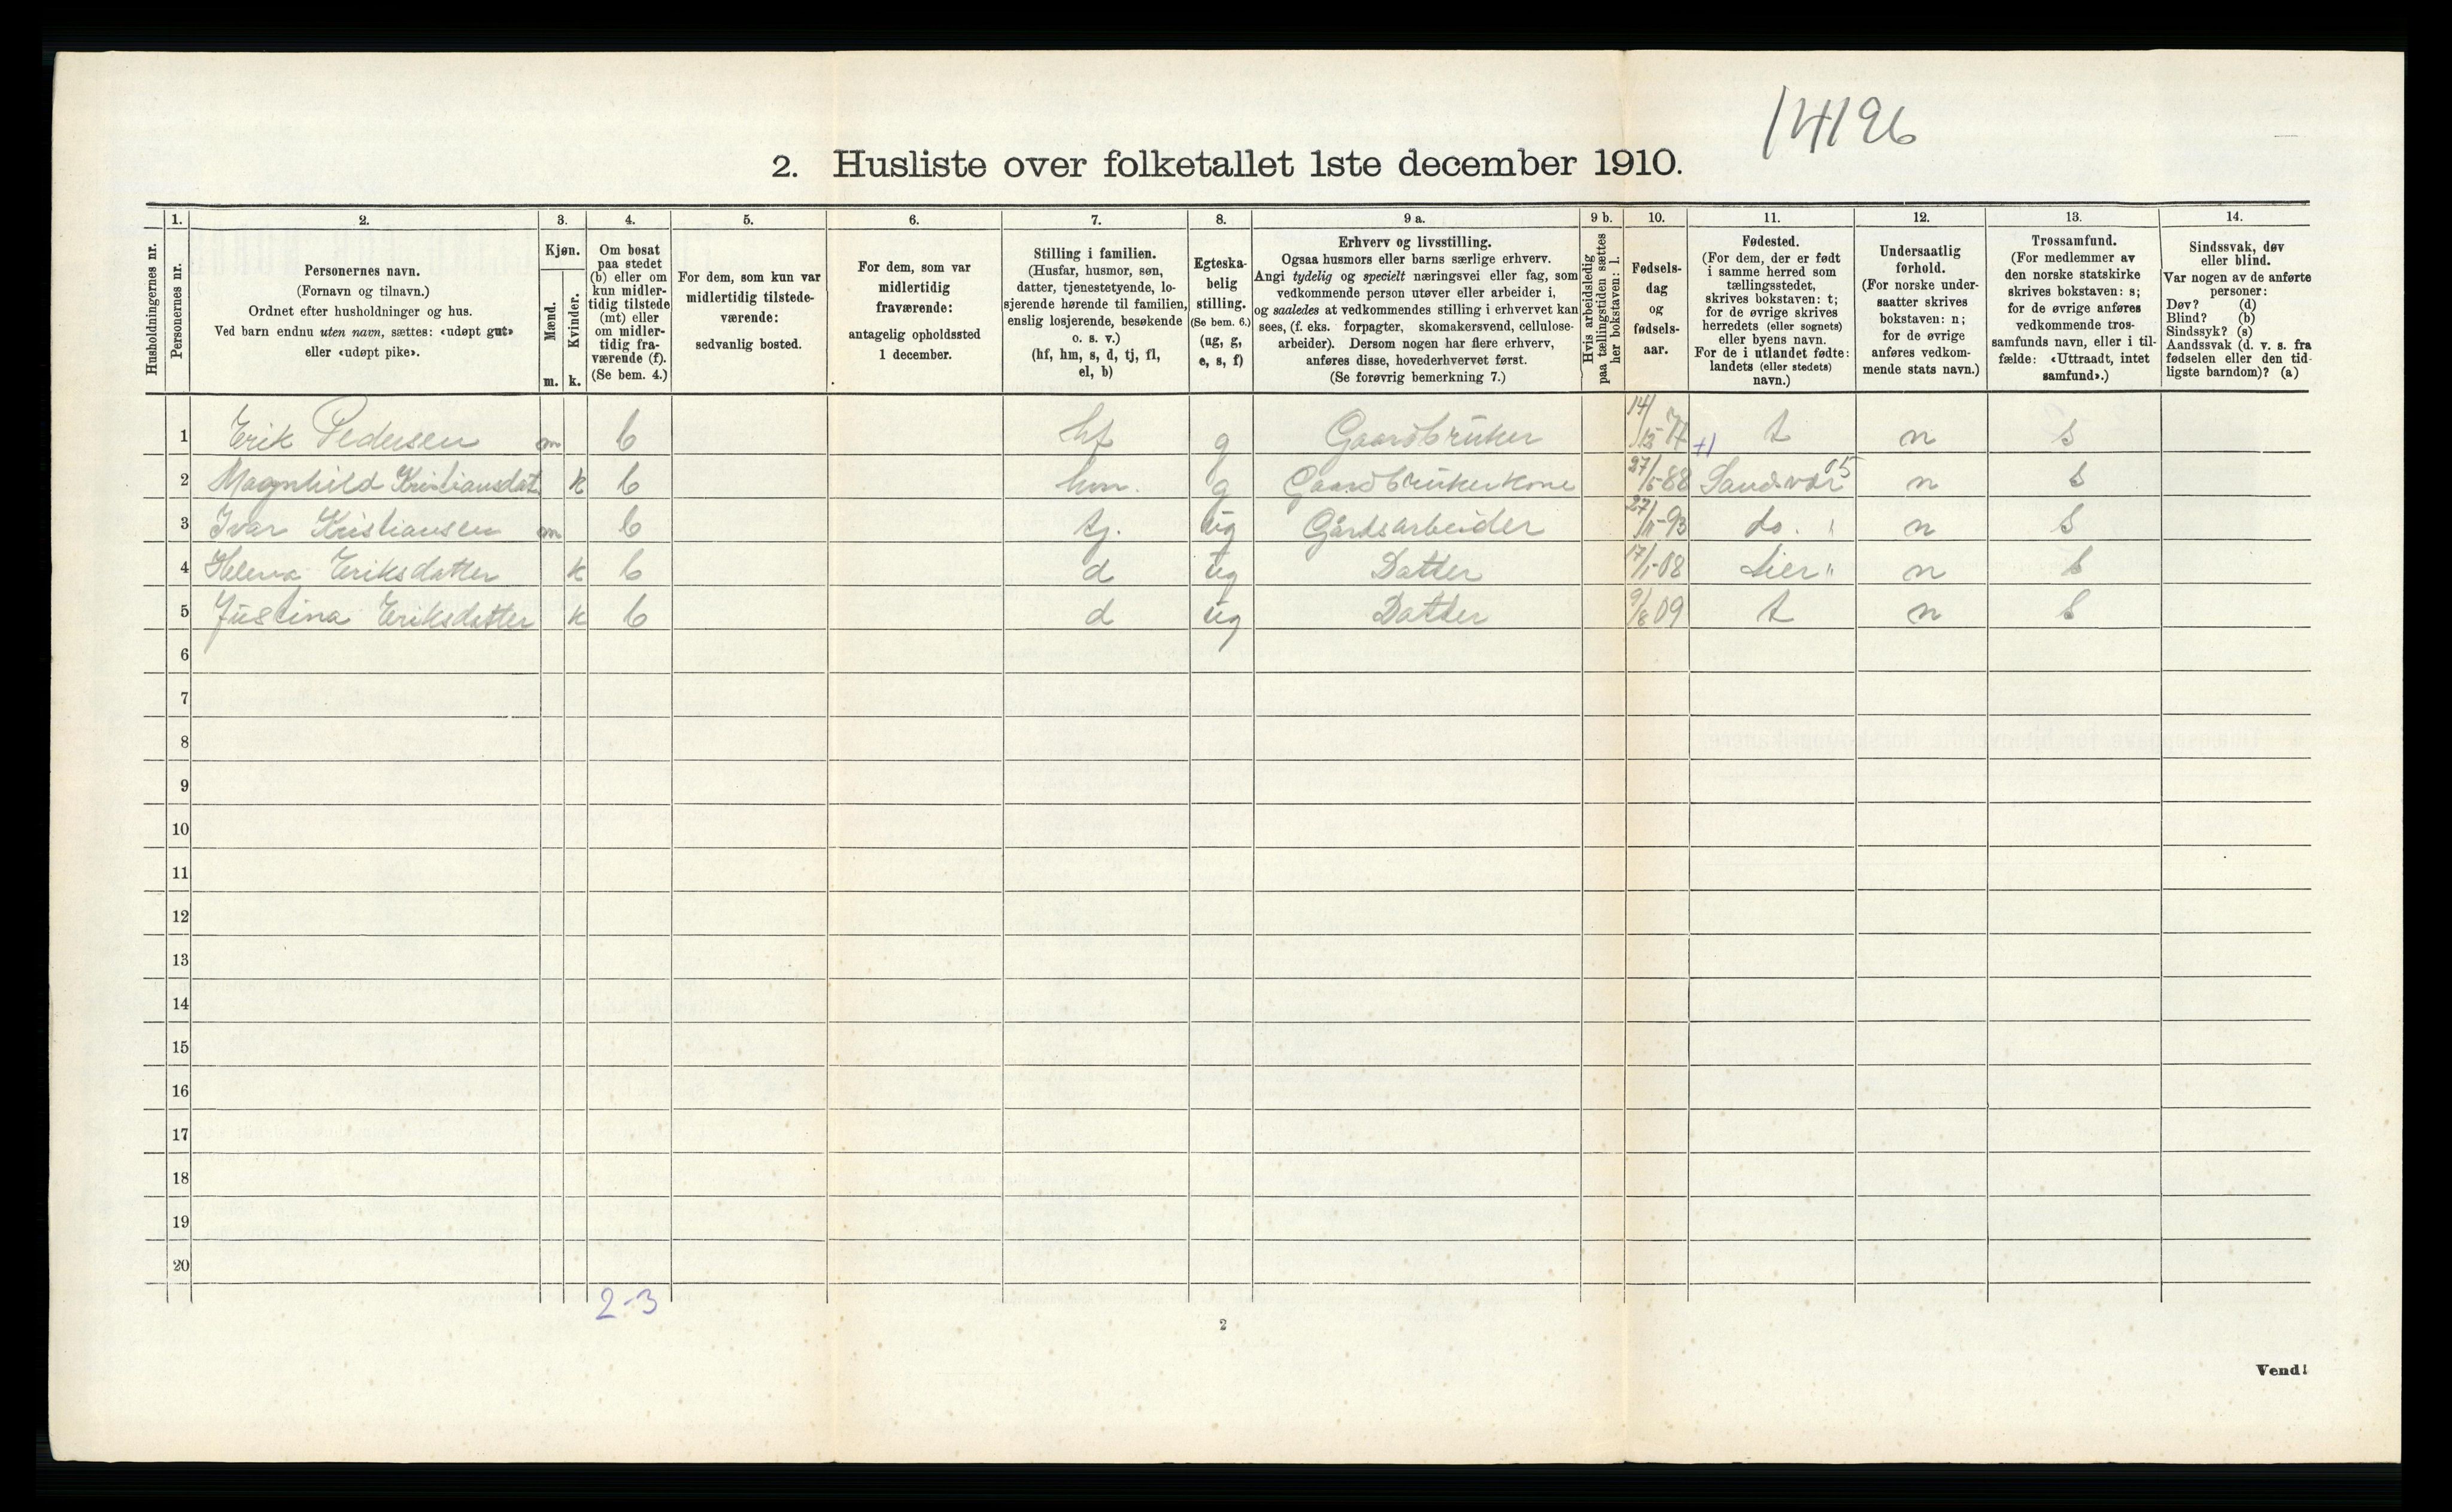 14196
2. Husliste over folketallet 1ste december 1910.
Husholdningernes nr.
1. Personernes nr.
2. Personernes navn. (Fornavn og tilnavn.) Ordnet efter husholdninger og hus. Ved barn endnu uten navn, sættes: «udøpt gut» eller «udøpt pike».
3. Kjøn. Mænd. m. Kvinder. k.
4. Om bosat paa stedet (b) eller om kun midlertidig tilstede (mt) eller om midlertidig fraværende (f). (Se bem. 4.)
5. For dem, som kun var midlertidig tilstedeværende: sedvanlig bosted.
6. For dem, som var midlertidig fraværende: antagelig opholdssted 1 december.
7. Stilling i familien. (Husfar, husmor, søn, datter, tjenestetyende, losjerende hørende til familien, enslig losjerende, besøkende o. s. v.) (hf, hm, s, d, tj, fl, el, b)
8. Egteskabelig stilling. (Se bem. 6.) (ug, g, e, s, f)
9 a. Erhverv og livsstilling. Ogsaa husmors eller barns særlige erhverv. Angi tydelig og specielt næringsvei eller fag, som vedkommende person utøver eller arbeider i, og saaledes at vedkommendes stilling i erhvervet kan sees, (f. eks. forpagter, skomakersvend, cellulosearbeider). Dersom nogen har flere erhverv, anføres disse, hovederhvervet først. (Se forøvrig bemerkning 7.)
9 b. Hvis arbeidsledig paa tællingstiden sættes her bokstaven: l.
10. Fødselsdag og fødselsaar.
11. Fødested. (For dem, der er født i samme herred som tællingsstedet, skrives bokstaven: t; for de øvrige skrives herredets (eller sognets) eller byens navn. For de i utlandet fødte: landets (eller stedets) navn.)
12. Undersaatlig forhold. (For norske undersaatter skrives bokstaven: n; for de øvrige anføres vedkommende stats navn.)
13. Trossamfund. (For medlemmer av den norske statskirke skrives bokstaven: s; for de øvrige anføres vedkommende trossamfunds navn, eller i tilfælde: «Uttraadt, intet samfund».)
14. Sindssvak, døv eller blind. Var nogen av de anførte personer: Døv? (d) Blind? (b) Sindssyk? (s) Aandssvak (d. v. s. fra fødselen eller den tidligste barndom)? (a)
1 Erik Pedersen m b hf g Gaardbruker 14/12-77 t n s
2 Magnhild Kristiansdat. k b hm. g Gaardbrukerkone 27/5-88 Sandsvær 05 n s
3 Ivar Kristiansen m b tj. ug Gårdsarbeider 27/11-93 do. " n s
4 Helena Eriksdatter k b d ug Datter 17/1-08 Lier " n s
5 Justina Eriksdatter k b d ug Datter 9/8 09 t n s
6
7
8
9
10
11
12
13
14
15
16
17
18
19
20
2-3
2
Vend!